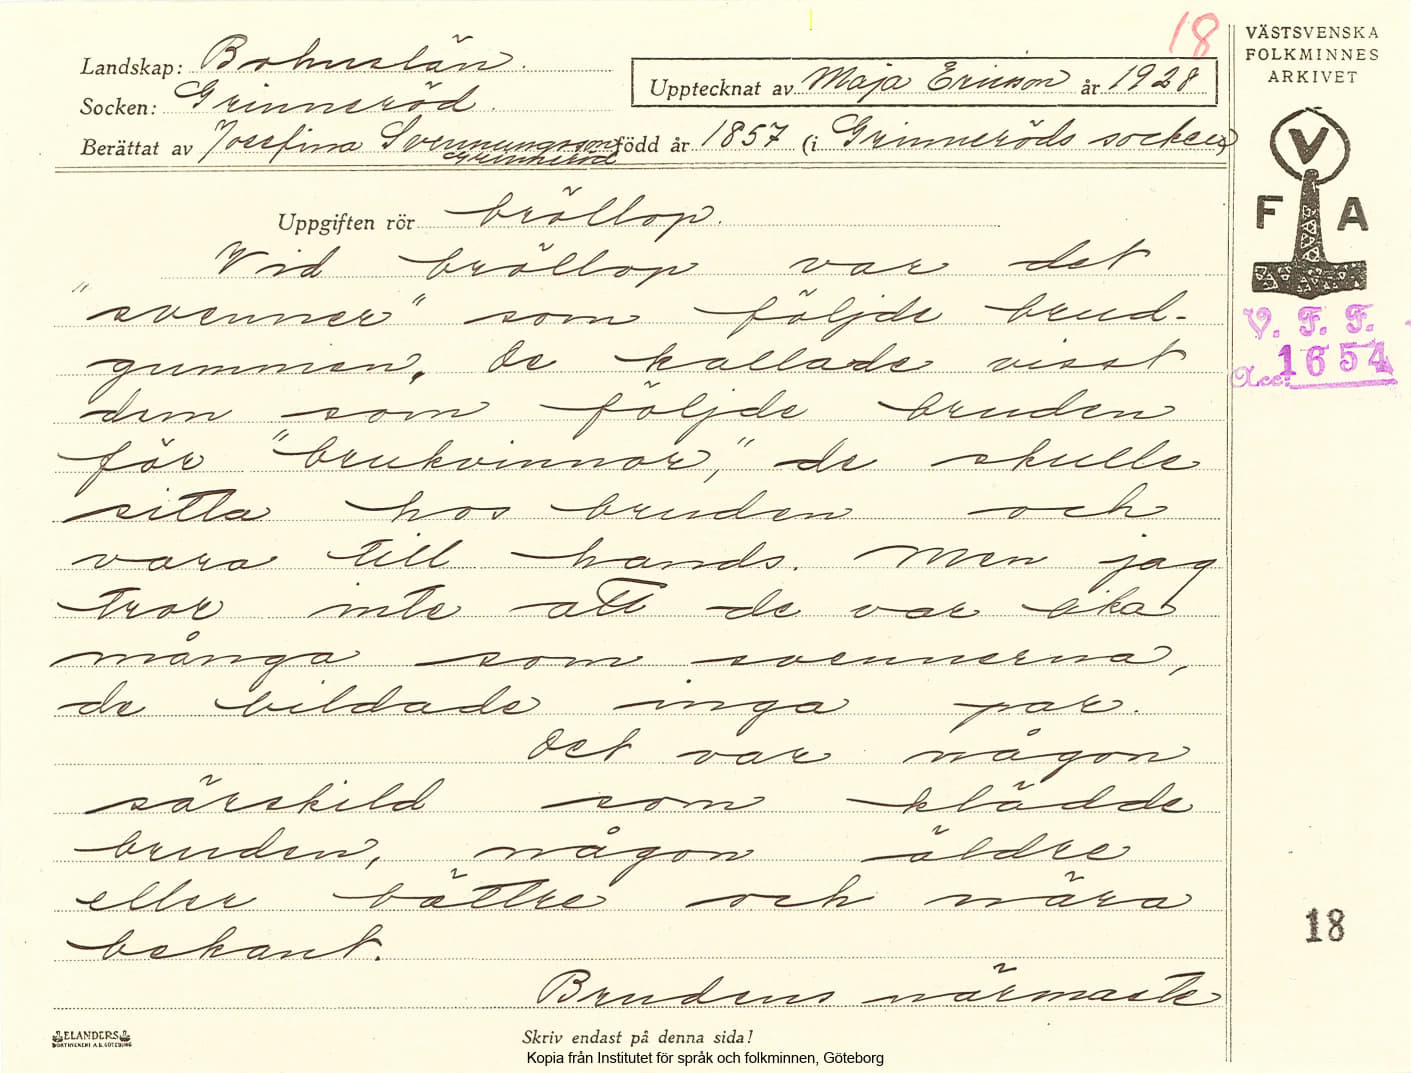 18
VÄSTSVENSKA
FOLKMINNES
ARKIVET
Landskap: Bohuslän.
Upptecknat av Maja Ericson år 1928
Socken: Grinneröd.
Berättat av Josefina Svennungsson född år 1857 (i Grinneröds socken)
Grinneröd
V
F A
Uppgiften rör bröllop.
Vid bröllop var det
"svenner" som följde brud-
gummen. De kallade visst
dem som följde bruden
för "brukvinnor", de skulle
sitta hos bruden och
vara till hands. Men jag
tror inte att de var lika
många som svennerna,
de bildade inga par.
Det var någon
särskild som klädde
bruden, någon äldre
eller bättre och nära
bekant.
Brudens närmaste
V. F. F.
Acc. 1654
18
ELANDERS
BOKTRYCKERI A.B. GÖTEBORG
Skriv endast på denna sida!
Kopia från Institutet för språk och folkminnen, Göteborg